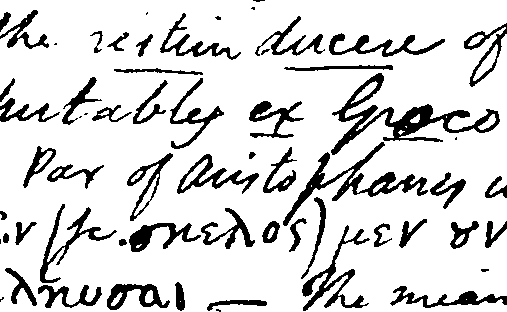 the restim ducere of
suitably ex Græco
Pax of Aristophanes
εν (sc. σκελος) μεν ουν
ελκυσαι — The mean